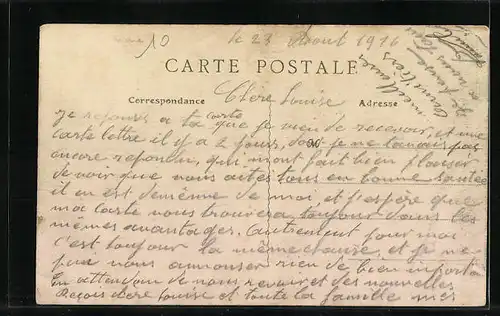 10
le 23 Aout 1916
CARTE POSTALE
Correspondance Chère Louise Adresse
Je reponds a ta carte que je vien de recevoir, et une
carte lettre il y a 2 jours, don je ne tavais pas
encore repondu, qui mont fait bien plaisir
de voir que vous autes tous en bonne santée
il en est demême de moi et j'espère que
ma carte vous trouvera toujour dans les
mêmes avantages. Autrement pour moi
c'est toujour la même chause, et je ne
pui vous annonser rien de bien importa
En attendan de vous revoir et des nouvelles
Reçois chere Louise et toute la famille mes
meilleures
amitiers